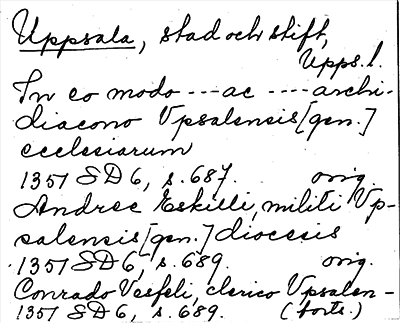 Uppsala, stad och stift,
Upps. l.
In eo modo --- ac ---- archi-
diacono Vpsalensis [gen.]
ecclesiarum
1357 SD 6, s. 687. orig.
Andree Eskilli, militi Vp-
salensis [gen.] diocesis
1357 SD 6, s. 689. orig.
Conrado Vesfeli, clerico Vpsalen-
1357 SD 6, s. 689. (forts.)